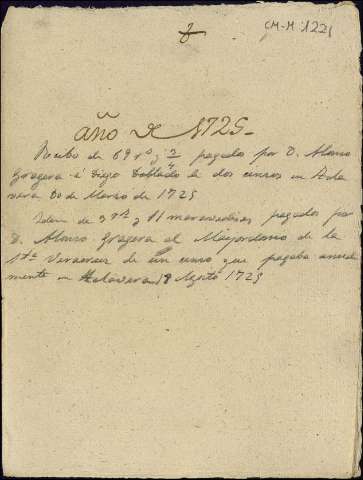 CM-M 1221
año de 1725-
Recibo de 69 r.s y 3/4 pagados por D. Alonso
Gragera á Diego Doblado de dos censos en Tala
vera 20 de Marzo de 1725
Idem de 3 r.s y 11 maravedises pagados por
D. Alonso Gragera al Mayordomo de la
Sta Veracruz de un censo que pagaba anual
mente en Talavera 19 Agosto 1725